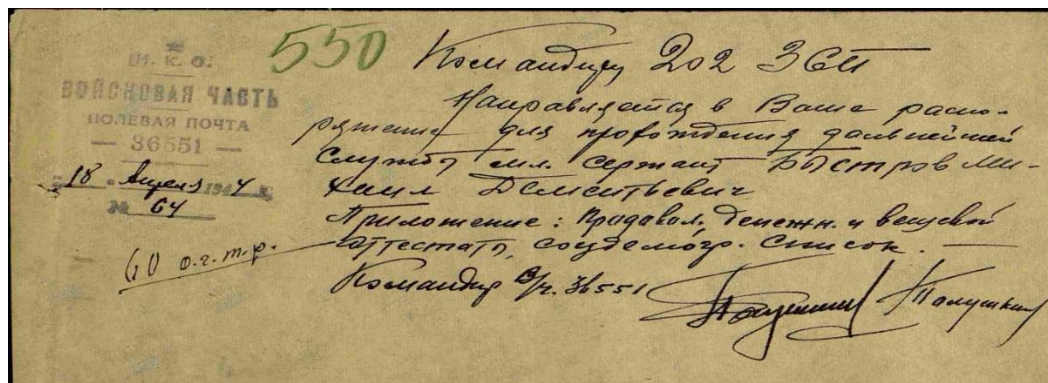 550
Н. К. О.
ВОЙСКОВАЯ ЧАСТЬ
ПОЛЕВАЯ ПОЧТА
— 36551 —
"18" Апреля 1944 г.
№ 64
60 о.г.т.р.
Командиру 202 ЗСП
Направляется в Ваше распо-
ряжение для прохождения дальнейшей
службы мл. сержант Быстров Ми-
хаил Дементьевич
Приложение: Продовол. денежн. и вещевой
аттестат, список.
Командир в/ч. 36551